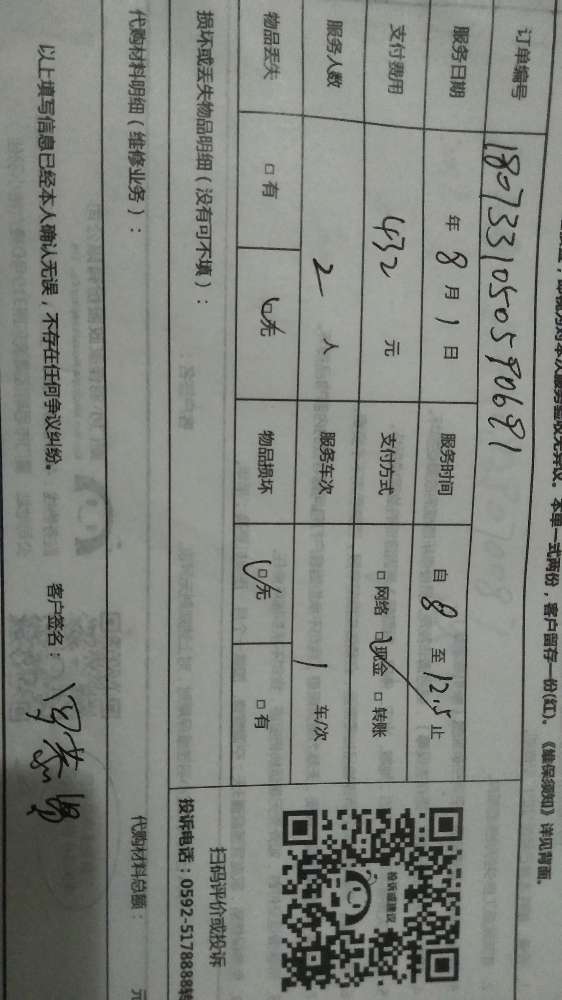 本单一式两份，客户留存一份(红)。《维保须知》详见背面。
订单编号 1807331050590691
服务日期 年 8 月 1 日 服务时间 自 8 至 12.5 止
支付费用 432 元 支付方式 □ 网络 □ 现金 □ 转账
服务人数 2 人 服务车次 1 车/次
物品丢失 □ 有 □ 无 物品损坏 □ 无 □ 有
投诉或建议
扫码评价或投诉
投诉电话：0592-5178888转
损坏或丢失物品明细（没有可不填）：
代购材料明细（维修业务）： 代购材料总额： 元
以上填写信息已经本人确认无误，不存在任何争议纠纷。 客户签名：